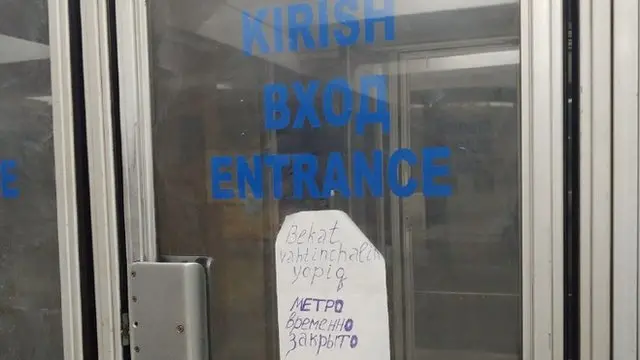 KIRISH
ВХОД
ENTRANCE
E
Bekat
vahtinchalik
yopiq
МЕТРО
временно
закрыто